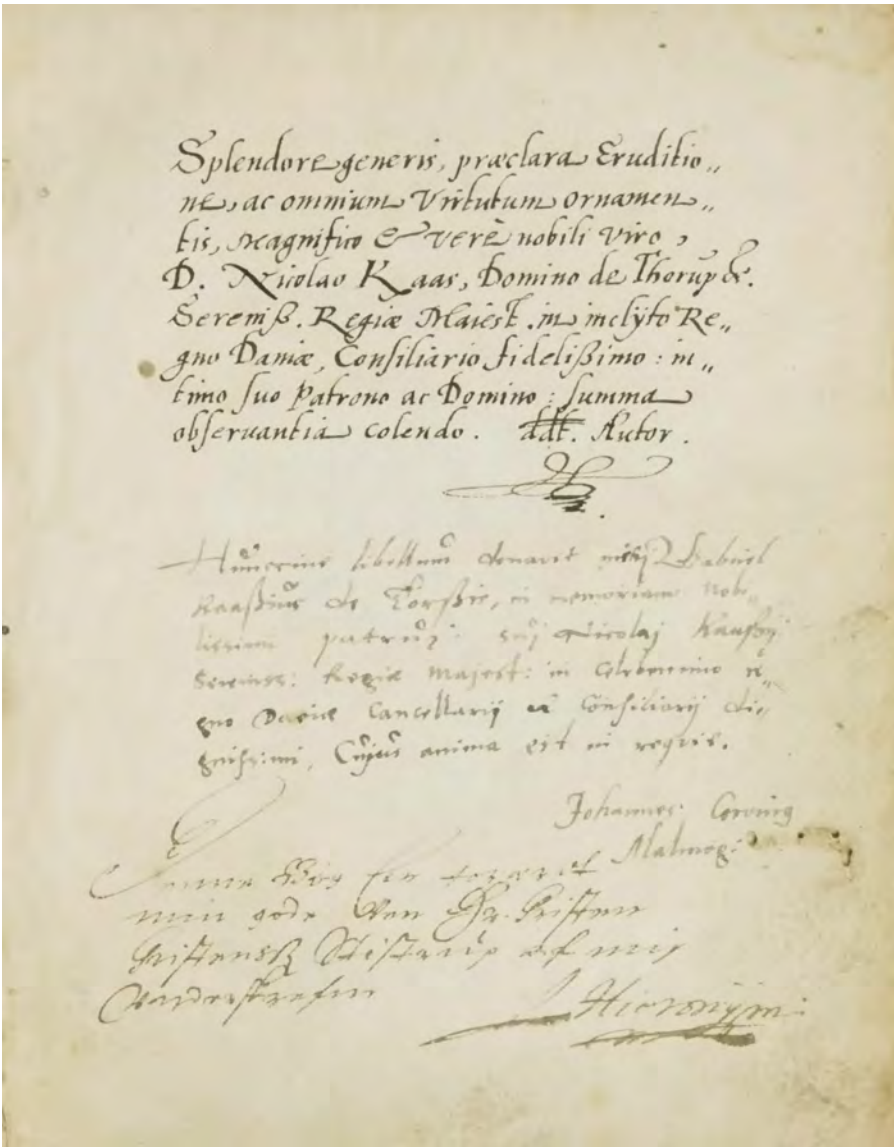 Splendore generis, præclara Eruditio„
ne, ac omnium Virtutum ornamen„
tis, Magnifico & verè nobili viro,
D. Nicolao Kaas, Domino de Thorup &.
Sereniß. Regiæ Maiest. in inclÿto Re„
gno Daniæ, Consiliario fidelißimo: in„
timo suo Patrono ac Domino: summa
obseruantia colendo. ddt. Autor.
Huncine libellum donavit mihj Gabriel
Kaaßius de Torßie, in memoriam Nobi„
lissimi patruj suj Nicolaj Kaaßij
Sereniss: Regiæ Majest: in celeberrimo re„
gno Daniæ Cancellarij & Consiliarij di„
gnissimi, Cujus anima est in requie.
Johannes Corvinus
Malmog:
Denne Bog
min gode Ven Hr. Christen
Stistrup af mig
Hieronÿm: